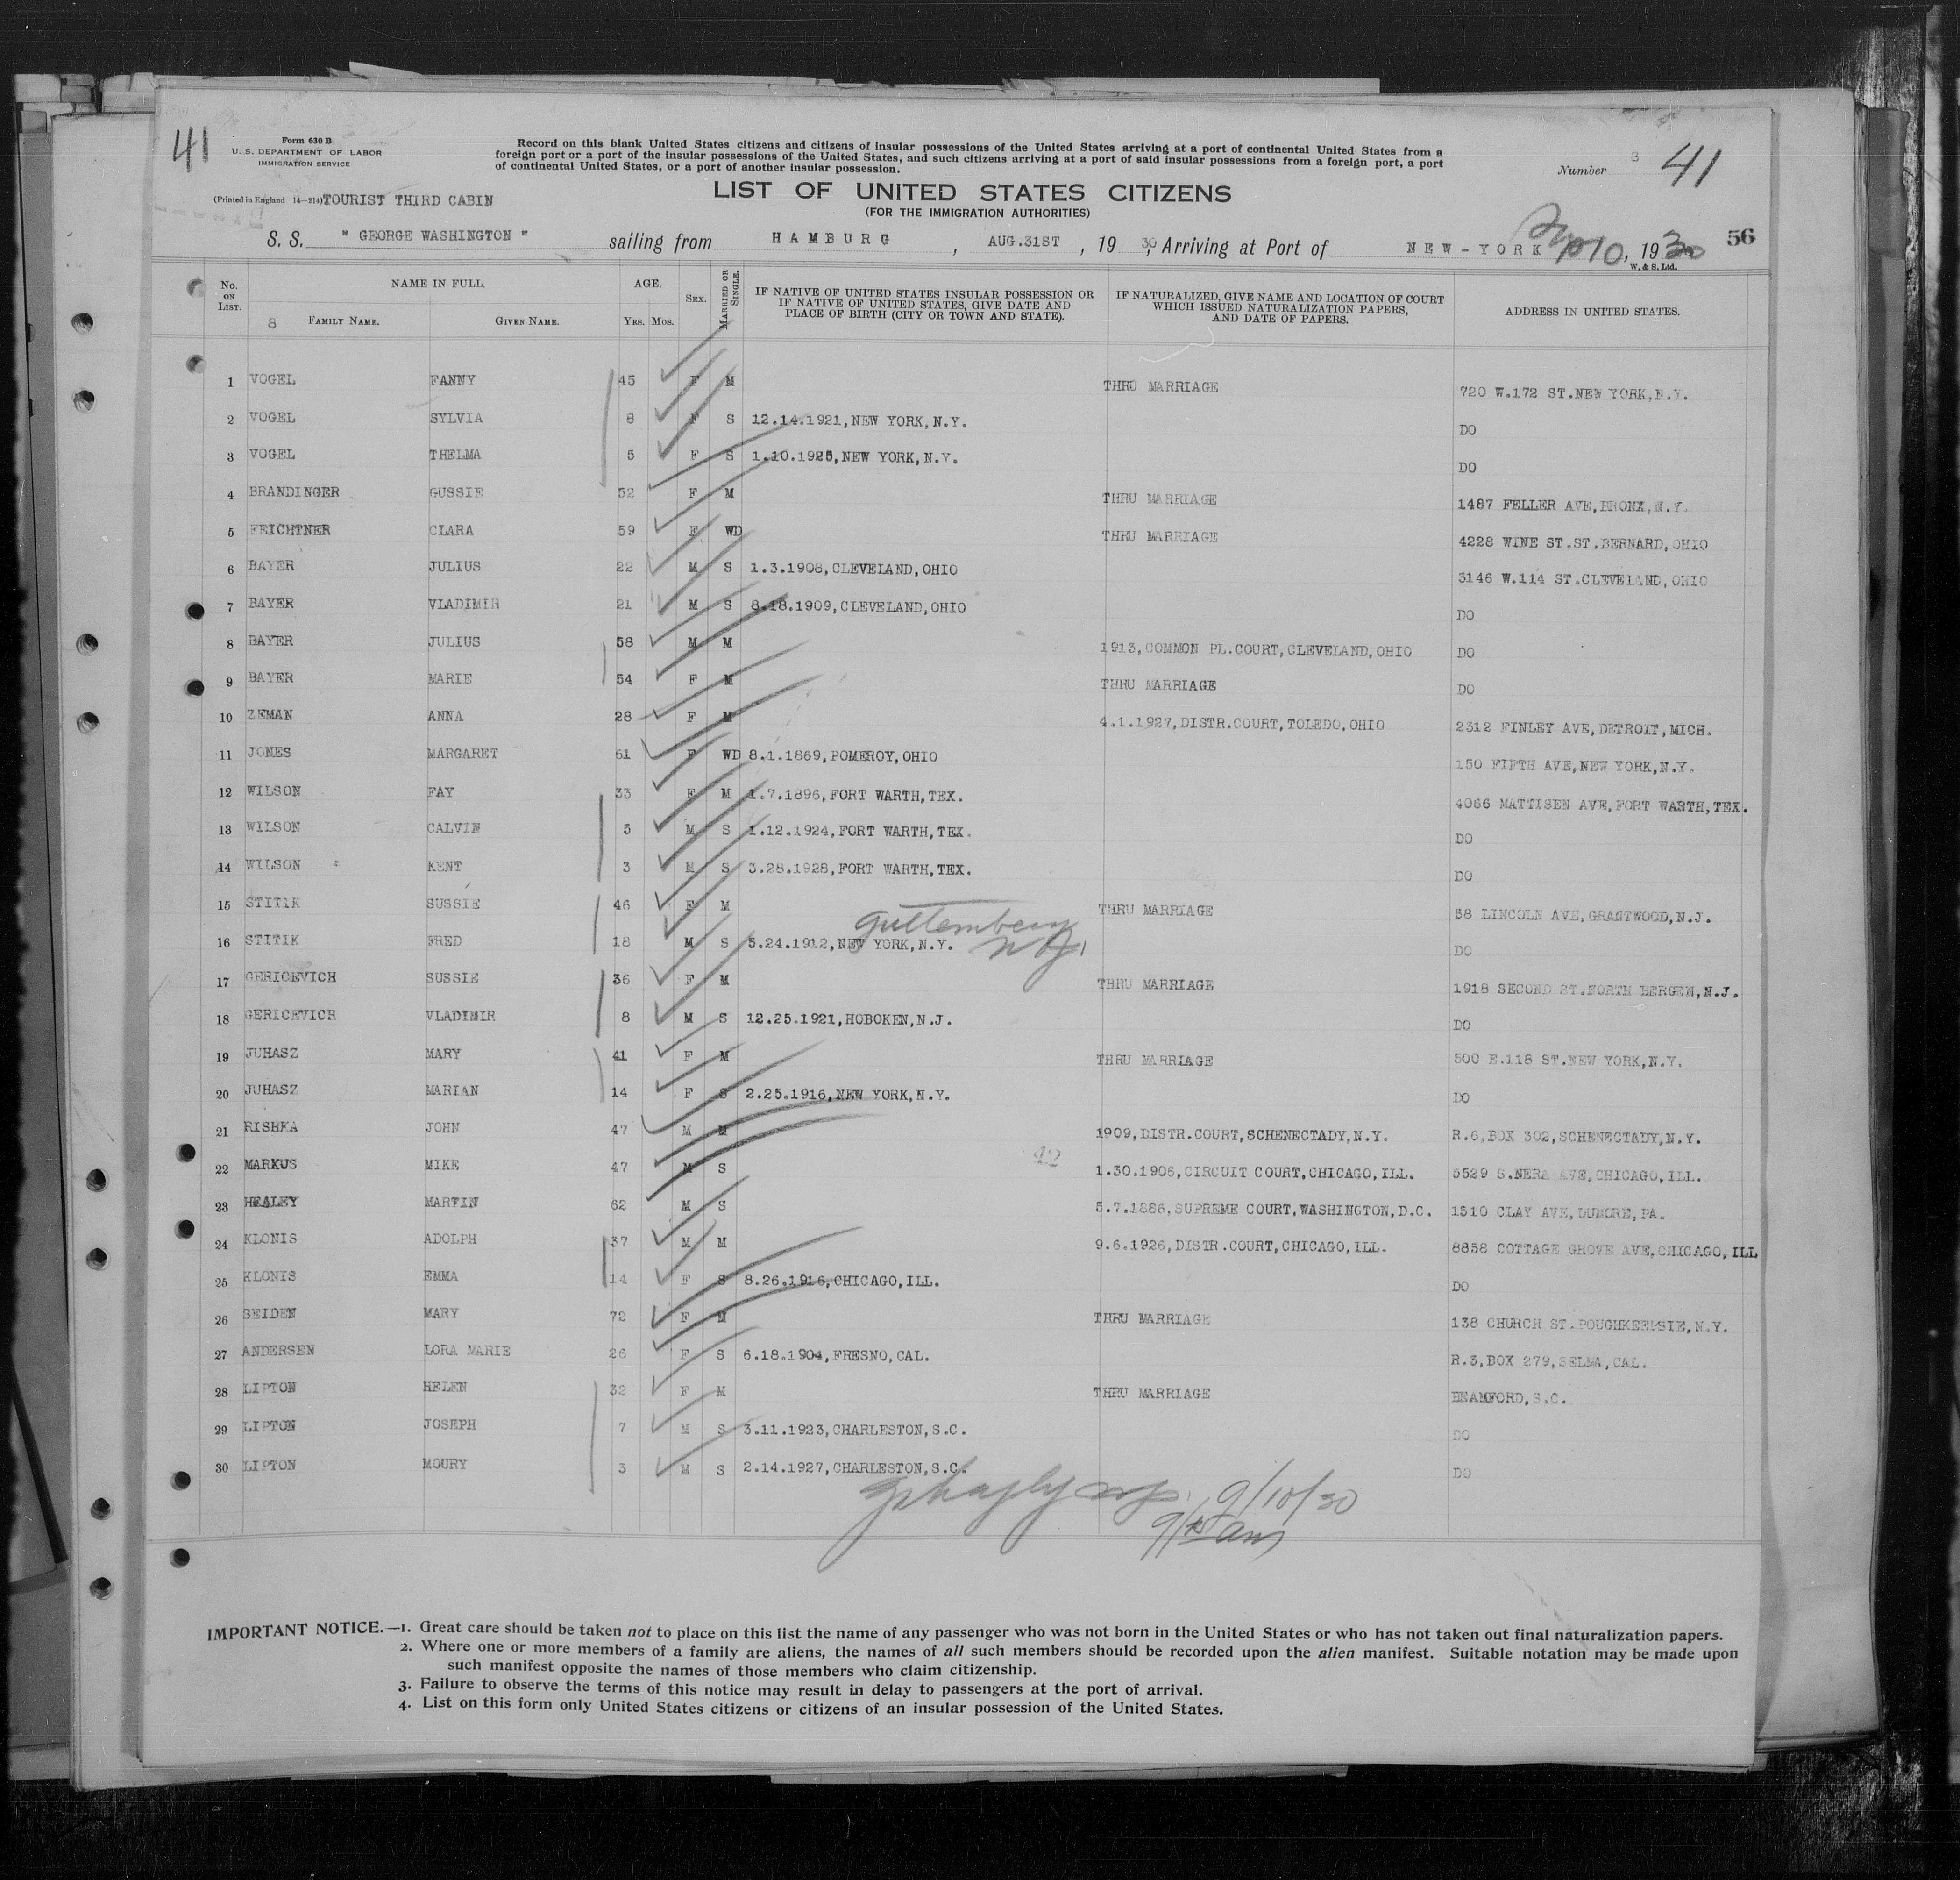 41
Form 630 B
U. S. DEPARTMENT OF LABOR
IMMIGRATION SERVICE
(Printed in England 14—214) TOURIST THIRD CABIN
Record on this blank United States citizens and citizens of insular possessions of the United States arriving at a port of continental United States from a
foreign port or a port of the insular possessions of the United States, and such citizens arriving at a port of said insular possessions from a foreign port, a port
of continental United States, or a port of another insular possession.
Number 8 41
LIST OF UNITED STATES CITIZENS
(FOR THE IMMIGRATION AUTHORITIES)
S. S. " GEORGE WASHINGTON " sailing from HAMBURG, AUG.31ST, 1930, Arriving at Port of NEW-YORK 10, 1930 56
W. & S. Ltd.
No. ON LIST. NAME IN FULL. AGE. SEX. MARRIED OR SINGLE. IF NATIVE OF UNITED STATES INSULAR POSSESSION OR IF NATIVE OF UNITED STATES, GIVE DATE AND PLACE OF BIRTH (CITY OR TOWN AND STATE). IF NATURALIZED, GIVE NAME AND LOCATION OF COURT WHICH ISSUED NATURALIZATION PAPERS, AND DATE OF PAPERS. ADDRESS IN UNITED STATES.
8 FAMILY NAME. GIVEN NAME. YRS. MOS.
1 VOGEL FANNY 45 F M THRU MARRIAGE 720 W.172 ST.NEW YORK,N.Y.
2 VOGEL SYLVIA 8 F S 12.14.1921,NEW YORK,N.Y. DO
3 VOGEL THELMA 5 F S 1.10.1925,NEW YORK,N.Y. DO
4 BRANDINGER GUSSIE 52 F M THRU MARRIAGE 1487 FELLER AVE,BRONX,N.Y.
5 FEICHTNER CLARA 59 F WD THRU MARRIAGE 4228 WINE ST.ST.BERNARD,OHIO
6 BAYER JULIUS 22 M S 1.3.1908,CLEVELAND,OHIO 3146 W.114 ST.CLEVELAND,OHIO
7 BAYER VLADIMIR 21 M S 8.18.1909,CLEVELAND,OHIO DO
8 BAYER JULIUS 58 M M 1913,COMMON PL.COURT,CLEVELAND,OHIO DO
9 BAYER MARIE 54 F M THRU MARRIAGE DO
10 ZEMAN ANNA 28 F M 4.1.1927,DISTR.COURT,TOLEDO,OHIO 2312 FINLEY AVE,DETROIT,MICH.
11 JONES MARGARET 61 F WD 8.1.1869,POMEROY,OHIO 150 FIFTH AVE,NEW YORK,N.Y.
12 WILSON FAY 33 F M 1.7.1896,FORT WARTH,TEX. 4066 MATTISEN AVE,FORT WARTH,TEX.
13 WILSON CALVIN 5 M S 1.12.1924,FORT WARTH,TEX. DO
14 WILSON KENT 3 M S 3.28.1928,FORT WARTH,TEX. DO
15 STITIK SUSSIE 46 F M THRU MARRIAGE 58 LINCOLN AVE,GRANTWOOD,N.J.
guttemberg
16 STITIK FRED 18 M S 5.24.1912,NEW YORK,N.Y. NJ DO
17 GERICEVICH SUSSIE 36 F M THRU MARRIAGE 1918 SECOND ST.NORTH BERGEN,N.J.
18 GERICEVICH VLADIMIR 8 M S 12.25.1921,HOBOKEN,N.J. DO
19 JUHASZ MARY 41 F M THRU MARRIAGE 500 E.118 ST.NEW YORK,N.Y.
20 JUHASZ MARIAN 14 F S 2.25.1916,NEW YORK,N.Y. DO
21 RISHKA JOHN 47 M M 1909,DISTR.COURT,SCHENECTADY,N.Y. R.6,BOX 302,SCHENECTADY,N.Y.
22 MARKUS MIKE 47 M S 42 1.30.1906,CIRCUIT COURT,CHICAGO,ILL. 5529 S.NERA AVE,CHICAGO,ILL.
23 HEALEY MARTIN 62 M S 5.7.1886,SUPREME COURT,WASHINGTON,D.C. 1510 CLAY AVE,DUMORE,PA.
24 KLONIS ADOLPH 37 M M 9.6.1926,DISTR.COURT,CHICAGO,ILL. 8858 COTTAGE GROVE AVE,CHICAGO,ILL
25 KLONIS EMMA 14 F S 8.26.1916,CHICAGO,ILL. DO
26 SEIDEN MARY 72 F M THRU MARRIAGE 138 CHURCH ST.POUGHKEEPSIE,N.Y.
27 ANDERSEN LORA MARIE 26 F S 6.18.1904,FRESNO,CAL. R.3,BOX 279,SELMA,CAL.
28 LIPTON HELEN 32 F M THRU MARRIAGE BEAMFORD,S.C.
29 LIPTON JOSEPH 7 M S 3.11.1923,CHARLESTON,S.C. DO
30 LIPTON MOURY 3 M S 2.14.1927,CHARLESTON,S.C. DO
9/10/30
IMPORTANT NOTICE.—1. Great care should be taken not to place on this list the name of any passenger who was not born in the United States or who has not taken out final naturalization papers.
2. Where one or more members of a family are aliens, the names of all such members should be recorded upon the alien manifest. Suitable notation may be made upon
such manifest opposite the names of those members who claim citizenship.
3. Failure to observe the terms of this notice may result in delay to passengers at the port of arrival.
4. List on this form only United States citizens or citizens of an insular possession of the United States.